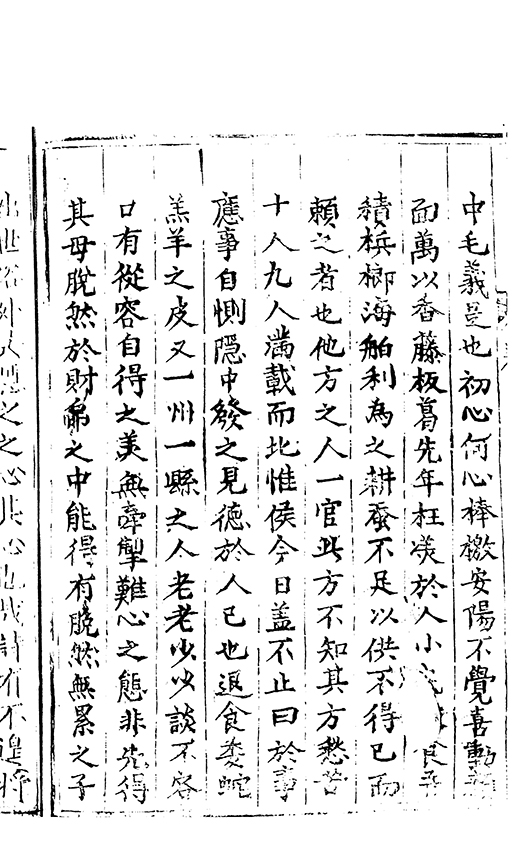 中毛義是也初心何心棒檄安陽不覺喜動顏
面萬以香藤板葛先年枉漢於人小食
積梹榔海舶利為之耕蚕不足以供不得已而
頼之者也他方之人一官此方不知其方愁苦
十人九人滿載而北惟侯今日盖不止曰於事
應事自惻隠中發之見德於人已也退食委蛇
羔羊之皮又一州一縣之人老老少少談不容
口有從容自得之美無牽掣難心之態非先得
其母脫然於財帛之中能得有脫然無累之子